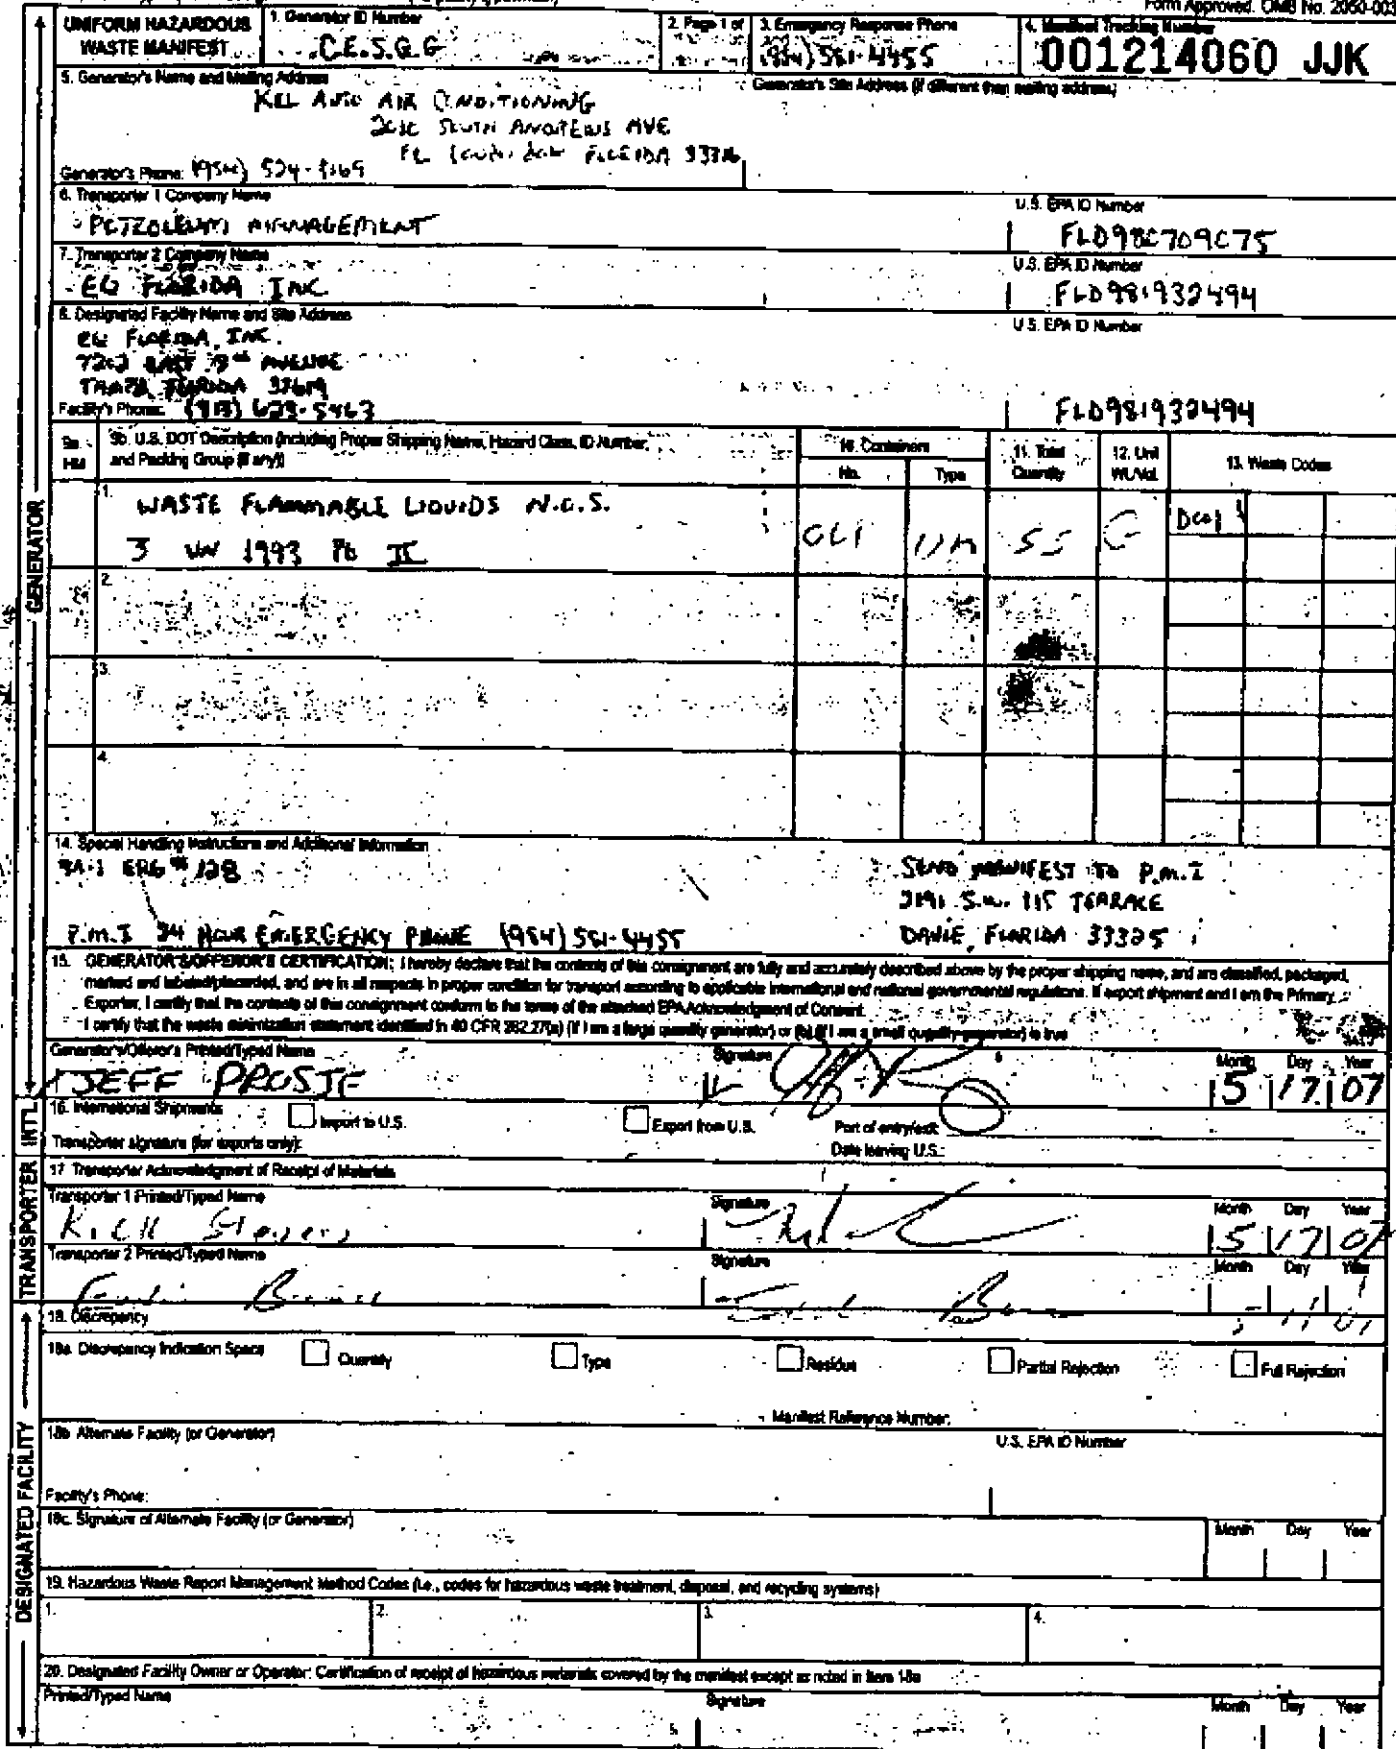 Form Approved. OMB No. 2050-003
UNIFORM HAZARDOUS WASTE MANIFEST
1. Generator ID Number
C.E.S.Q.G
2. Page 1 of
3. Emergency Response Phone
(954) 581-4455
4. Manifest Tracking Number
001214060 JJK
5. Generator's Name and Mailing Address
Generator's Site Address (if different than mailing address)
AUTO AIR CONDITIONING
SOUTH ANDREWS AVE
FLORIDA 33316
Generator's Phone: (954) 524-
6. Transporter 1 Company Name
U.S. EPA ID Number
PETROLEUM MANAGEMENT
FLD980709075
7. Transporter 2 Company Name
U.S. EPA ID Number
EQ FLORIDA INC.
FLD981932494
8. Designated Facility Name and Site Address
U.S. EPA ID Number
EQ FLORIDA, INC.
EAST AVENUE
TAMPA FLORIDA 33619
Facility's Phone: (813) 623-5463
FLD981932494
9a. HM
9b. U.S. DOT Description (including Proper Shipping Name, Hazard Class, ID Number, and Packing Group (if any))
10. Containers
No.
Type
11. Total Quantity
12. Unit Wt./Vol.
13. Waste Codes
1.
WASTE FLAMMABLE LIQUIDS N.O.S.
3 UN 1993 PG II
001
DM
55
G
D001
2.
3.
4.
14. Special Handling Instructions and Additional Information
ERG # 128
SEND MANIFEST TO P.M.I
S.W. 115 TERRACE
P.M.I 24 HOUR EMERGENCY PHONE (954) 581-4455
DAVIE, FLORIDA 33325
15. GENERATOR'S/OFFEROR'S CERTIFICATION: I hereby declare that the contents of this consignment are fully and accurately described above by the proper shipping name, and are classified, packaged,
marked and labeled/placarded, and are in all respects in proper condition for transport according to applicable international and national governmental regulations. If export shipment and I am the Primary
Exporter, I certify that the contents of this consignment conform to the terms of the attached EPA Acknowledgment of Consent.
I certify that the waste minimization statement identified in 40 CFR 262.27(a) (if I am a large quantity generator) or (b) (if I am a small quantity generator) is true
Generator's/Offeror's Printed/Typed Name
Signature
Month Day Year
JEFF
5 17 07
16. International Shipments
Import to U.S.
Export from U.S.
Port of entry/exit:
Transporter signature (for exports only):
Date leaving U.S.:
17. Transporter Acknowledgment of Receipt of Materials
Transporter 1 Printed/Typed Name
Signature
Month Day Year
5 17 07
Transporter 2 Printed/Typed Name
Signature
Month Day Year
18. Discrepancy
18a. Discrepancy Indication Space
Quantity
Type
Residue
Partial Rejection
Full Rejection
Manifest Reference Number:
18b. Alternate Facility (or Generator)
U.S. EPA ID Number
Facility's Phone:
18c. Signature of Alternate Facility (or Generator)
Month Day Year
19. Hazardous Waste Report Management Method Codes (i.e., codes for hazardous waste treatment, disposal, and recycling systems)
1.
2.
3.
4.
20. Designated Facility Owner or Operator: Certification of receipt of hazardous materials covered by the manifest except as noted in Item 18a
Printed/Typed Name
Signature
Month Day Year
GENERATOR
INT'L
TRANSPORTER
DESIGNATED FACILITY